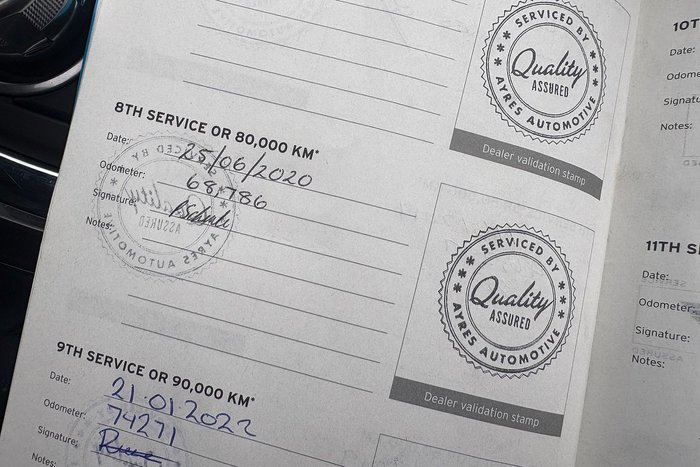 SERVICED BY
Quality
ASSURED
AYRES AUTOMOTIVE
Dealer validation stamp
8TH SERVICE OR 80,000 KM*
Date: 25/06/2020
Odometer: 68,786
Signature:
Notes:
SERVICED BY
Quality
ASSURED
AYRES AUTOMOTIVE
SERVICED BY
Quality
ASSURED
AYRES AUTOMOTIVE
Dealer validation stamp
9TH SERVICE OR 90,000 KM*
Date: 21.01.2022
Odometer: 74271
Signature:
Notes:
10T
Date:
Odome
Signatu
Notes:
11TH S
Date:
Odometer:
Signature:
Notes: